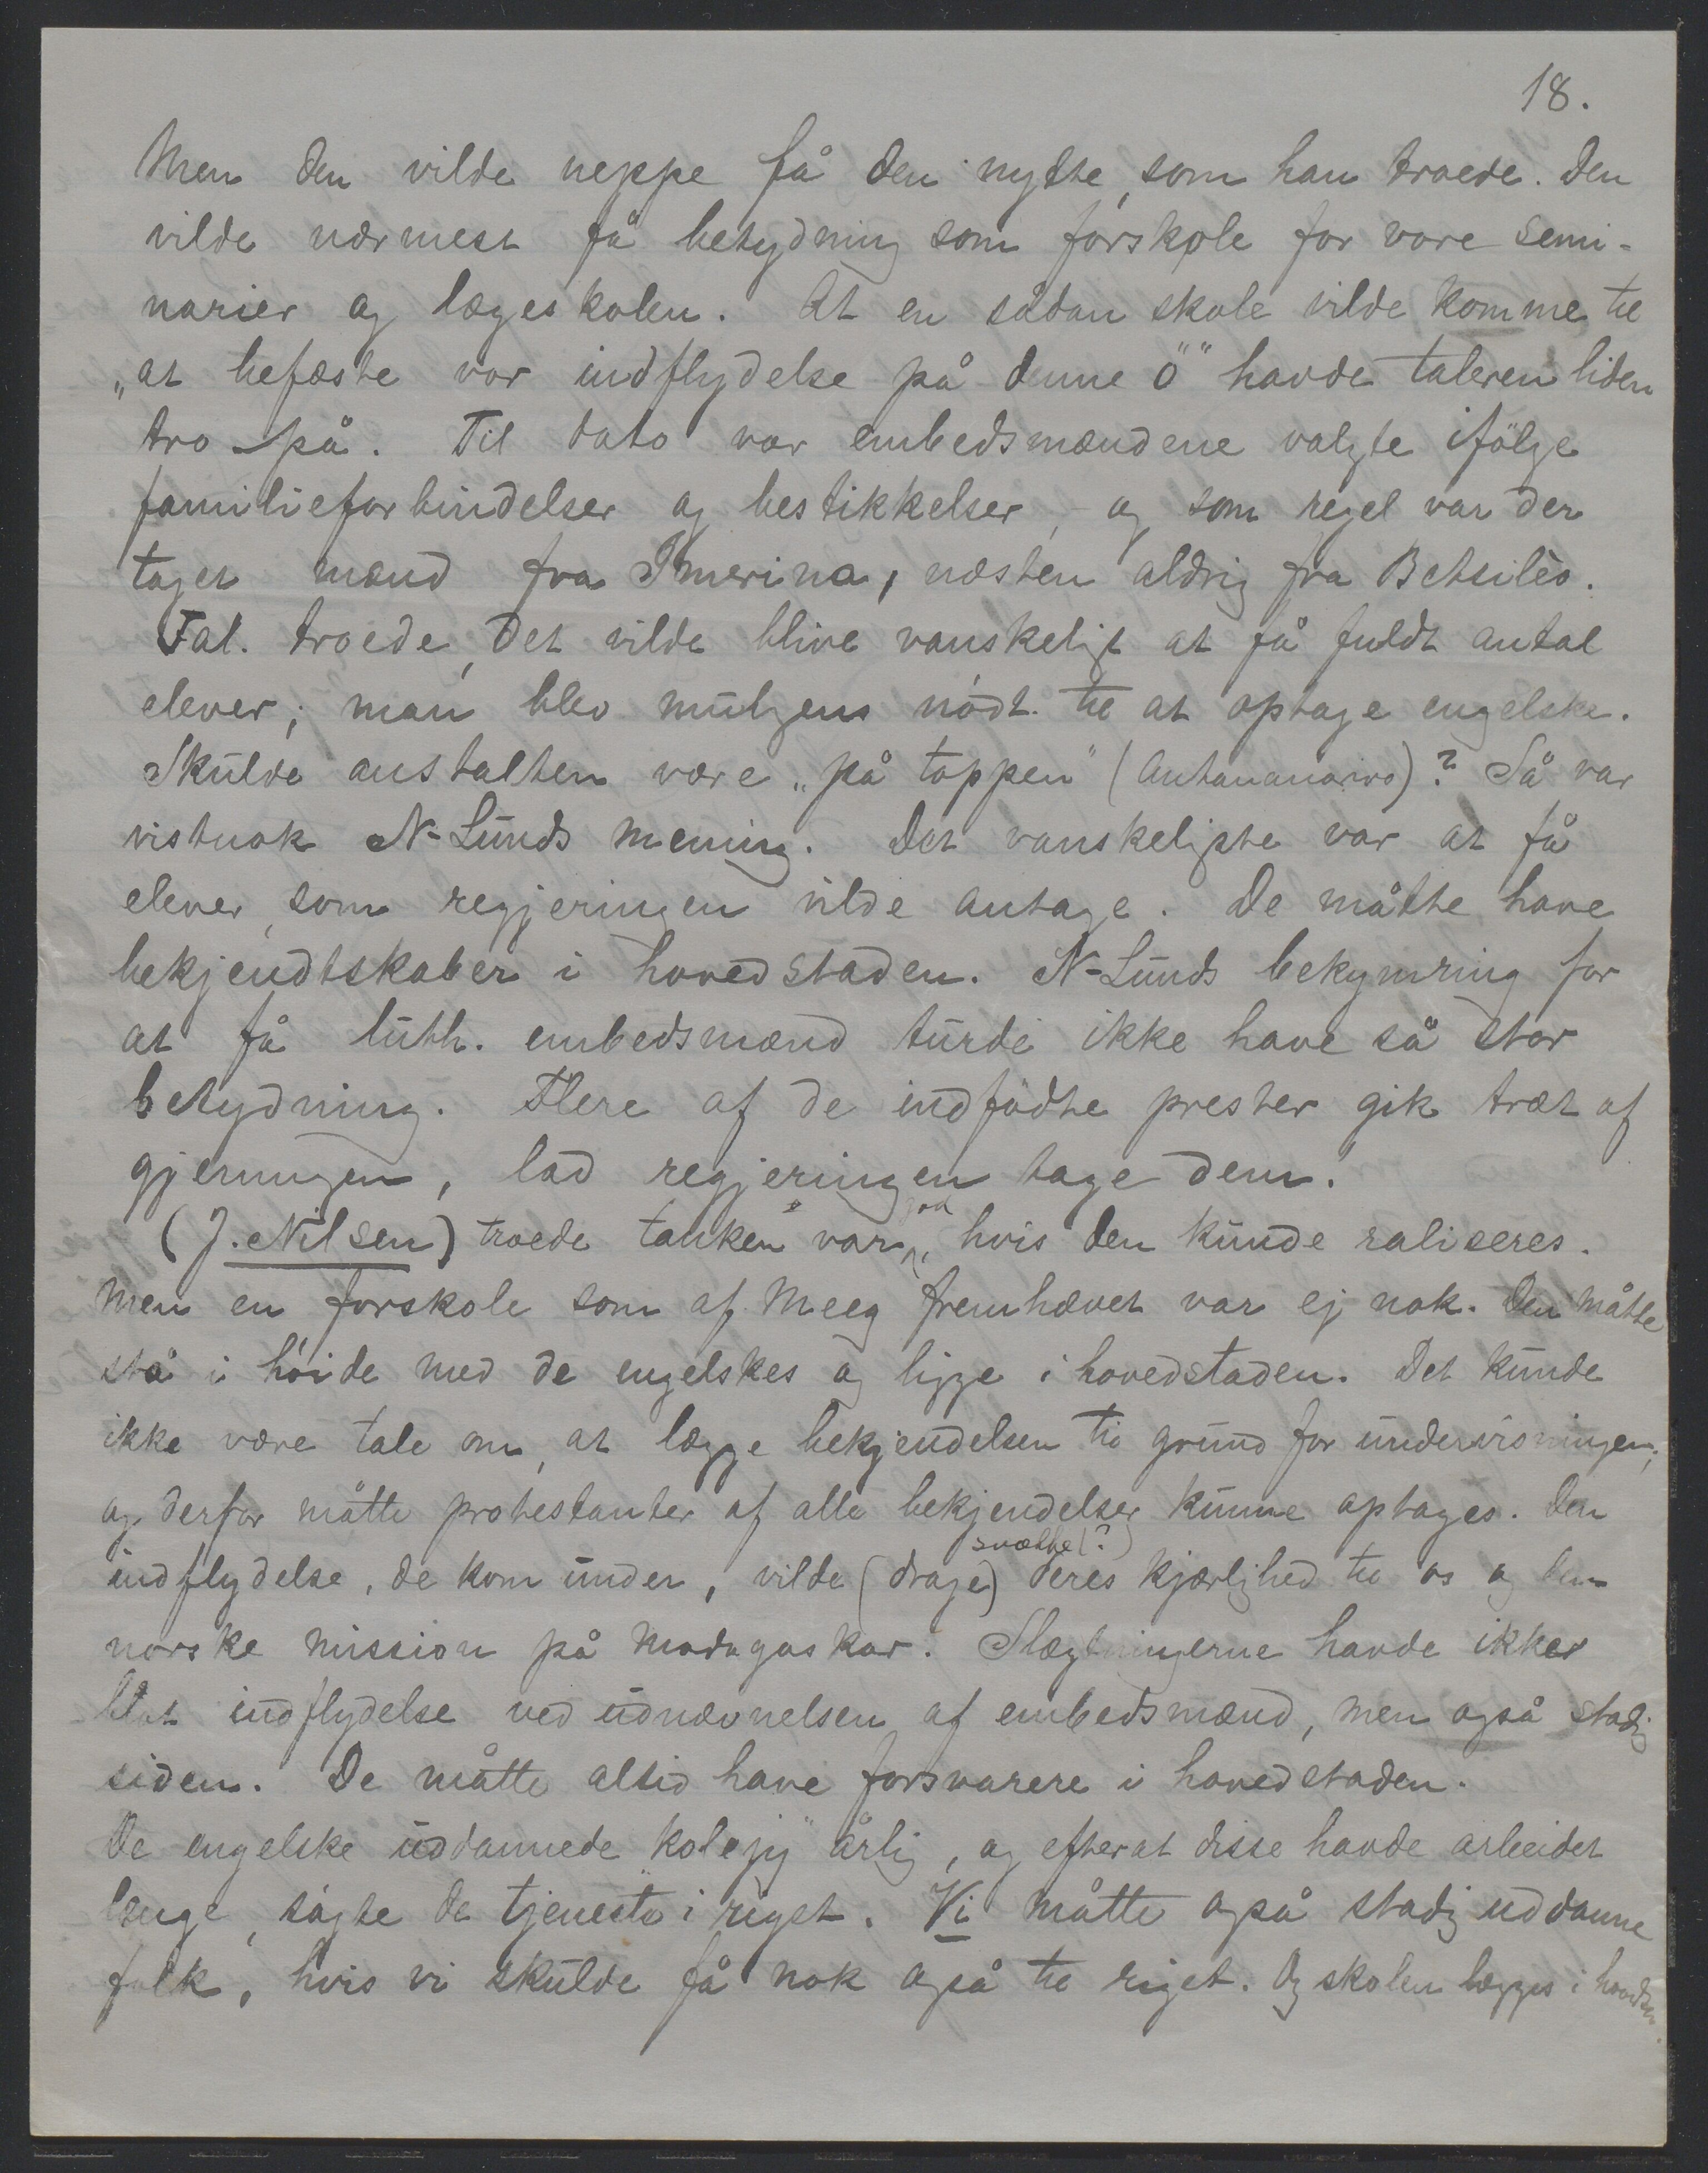 18.
Men den vilde neppe få den nytte, som han troede. Den
vilde nærmest få betydning som forskole for vore semi-
narier og lægeskolen. At en sådan skole vilde komme til
„at befæste vor indflydelse på denne ö" havde taleren liden
tro på. Til dato var embedsmændene valgte ifölge
familieforbindelser og bestikkelser, - og som regel var der
taget mænd fra Imerina, næsten aldrig fra Betsileo.
Tal. troede, det vilde blive vanskeligt at få fuldt antal
elever; man blev muligens nödt til at optage engelske.
Skulde anstalten være „på toppen" (Antananarivo)? Så var
vistnok N-Lunds mening. Det vanskeligste var at få
elever, som regjeringen vilde antage. De måtte have
bekjendtskaber i hovedstaden. N-Lunds bekymring for
at få luth. embedsmænd turde ikke have så stor
betydning. Flere af de indfödte prester gik træt af
gjerningen, lad regjeringen tage dem.
(J. Nilsen) troede tanken var god, hvis den kunde raliseres.
Men en forskole som af Meeg fremhævet var ej nok. Den måtte
stå i höide med de engelskes og ligge i hovedstaden. Det kunde
ikke være tale om, at lægge bekjendelsen til grund for undervisningen;
og derfor måtte protestanter af alle bekjendelser kunne optages. Den
indflydelse, de kom under, vilde (drage) svække(?) deres kjærlighed til os og den
norske mission på Madagaskar. Slægtningerne havde ikke
blot indflydelse ved udnævnelsen af embedsmænd, men også stadig
siden. De måtte altid have forsvarere i hovedstaden.
De engelske uddannede "kolejy" årlig, og efterat disse havde arbeidet
længe, sögte de tjeneste i riget. Vi måtte også stadig uddanne
folk, hvis vi skulde få nok også til riget. Og skolen lægges i